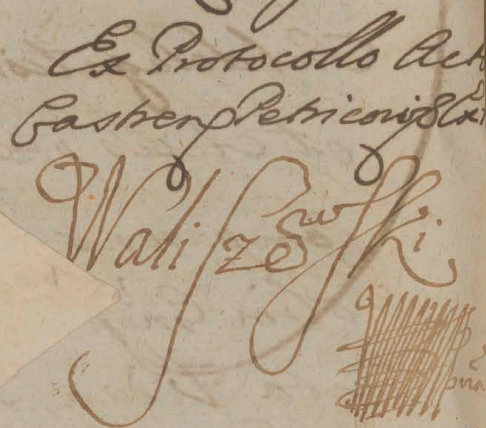 Ex Protocollo Act
Castren Petricovien
Waliszewski